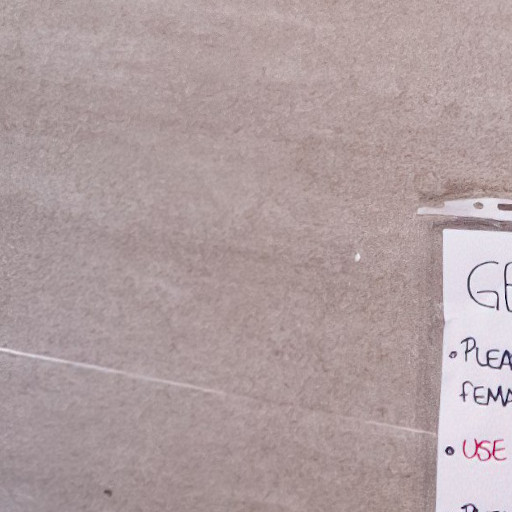 GE
• PLEA
FEMA
• USE